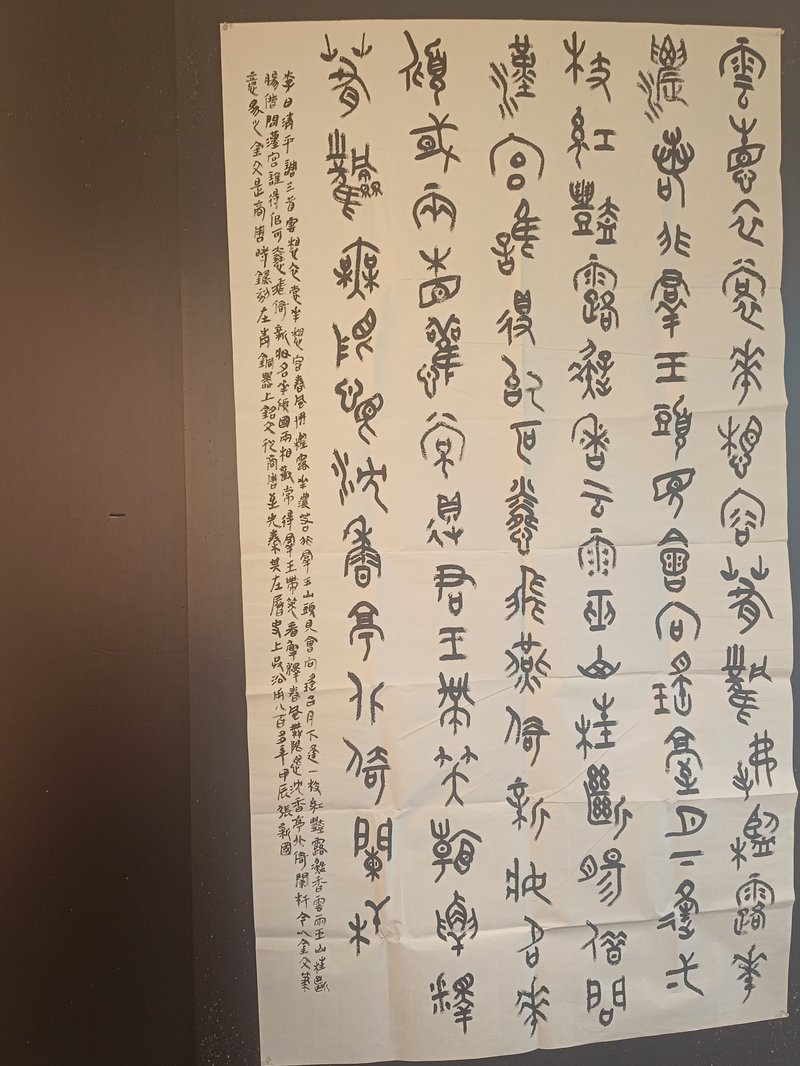 雲想衣裳華想容春風拂檻露華
濃若非羣玉頭見會向瑤臺月下逢弌
枝紅豔露凝香云雨巫山枉斷腸借問
漢宮誰得似可憐飛燕倚新妝名華
傾或兩相懽常得君王帶笑看解釋
春風無限恨沈香亭北倚闌杆
李白清平調三首雲想衣裳華想容春風拂檻露華濃若非羣玉山頭見會向瑤台月下逢一枝紅豔露凝香雲雨巫山枉斷
腸借問漢宮誰得似可憐飛燕倚新妝名華傾國兩相歡常得君王帶笑看解釋春風無限恨沈香亭北倚闌杆今以金文筆
意爲之金文是商周時鑄刻在青銅器上銘文從商周至先秦其在歷史上共沿用八百多年甲辰張新國